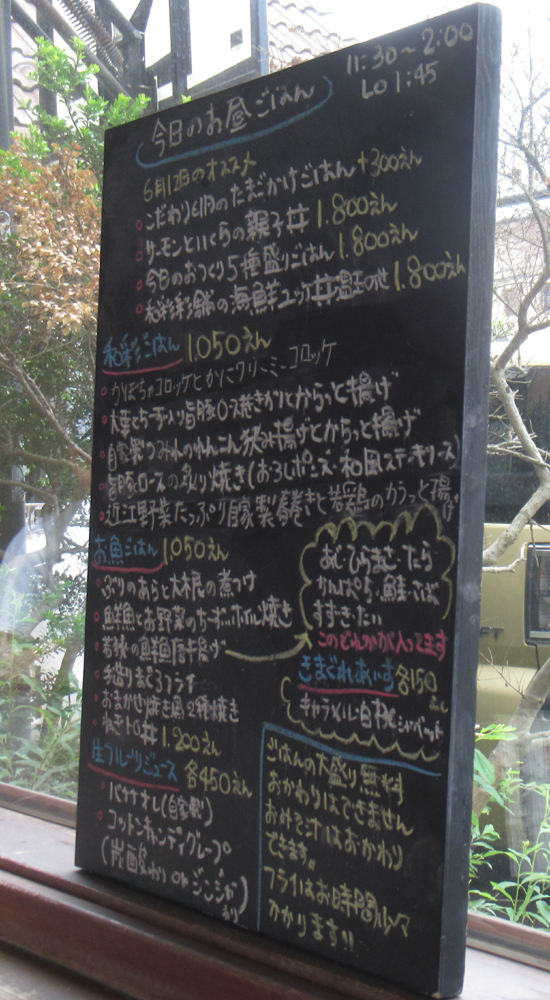 11:30〜2:00
LO 1:45
今日のお昼ごはん
6月12日のオススメ
こだわり卵のたまごかけごはん +300えん
サーモンといくらの親子丼 1.800えん
今日のおつくり5種盛りごはん 1.800えん
和彩彩舗の海鮮ユッケ丼温玉のせ 1.800えん
和彩ごはん 1.050えん
かぼちゃコロッケとかにクリーミーコロッケ
大葉とチーズ入り旨豚ロス焼きカツとからっと揚げ
自家製つみれのれんこん挟み揚げとからっと揚げ
旨豚ロースの炙り焼き(おろしポン酢・和風ステーキソース)
近江野菜たっぷり自家製春巻きと若鶏のからっと揚げ
お魚ごはん 1.050えん
ぶりのあらと大根の煮つけ
鮮魚とお野菜のチーズホイル焼き
若狭の鮮魚唐揚げ
手造りまぐろフライ
おまかせ焼き魚2種焼き
ねぎトロ丼 1.200えん
あじ・ひらまさ・たら
かんぱち・鮭・さば
すずき・たい
このどれかが入ってます
きまぐれあいす 各150えん
キャラメル・白桃シャーベット
生フルーツジュース 各450えん
バナナオレ(自家製)
コットンキャンディグレープ
(炭酸わり or ジンジャーわり)
ごはんの大盛り無料
おかわりはできません
おみそ汁はおかわり
できます。
フライはお時間少々
かかります!!